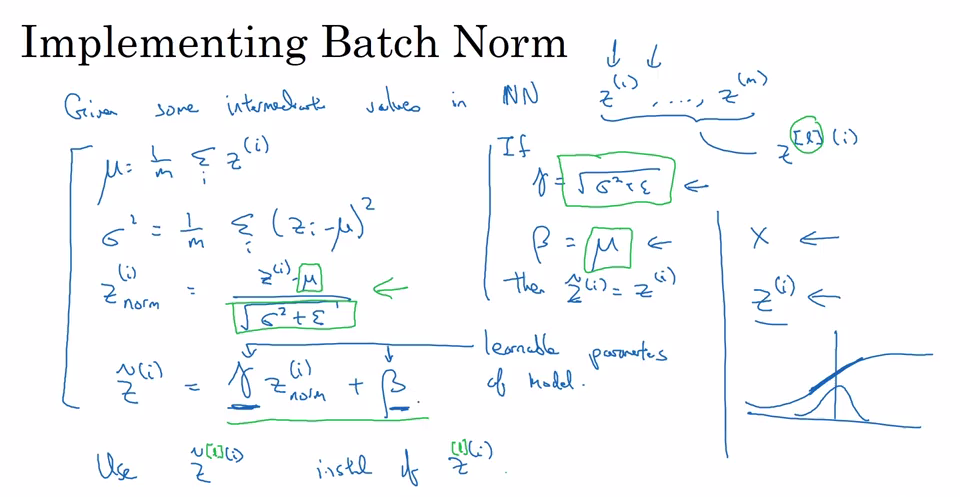 Implementing Batch Norm
Given some intermediate values in NN z^(i), ..., z^(m)
z^[l](i)
μ = 1/m Σ_i z^(i)
σ² = 1/m Σ_i (z_i - μ)²
z_norm^(i) = (z^(i) - μ) / √(σ² + ε)
z̃^(i) = γ z_norm^(i) + β
learnable parameters
of model.
If
γ = √(σ² + ε) ←
β = μ ←
then z̃^(i) = z^(i)
X ←
z^(i) ←
Use z̃^[l](i) instead of z^[l](i).